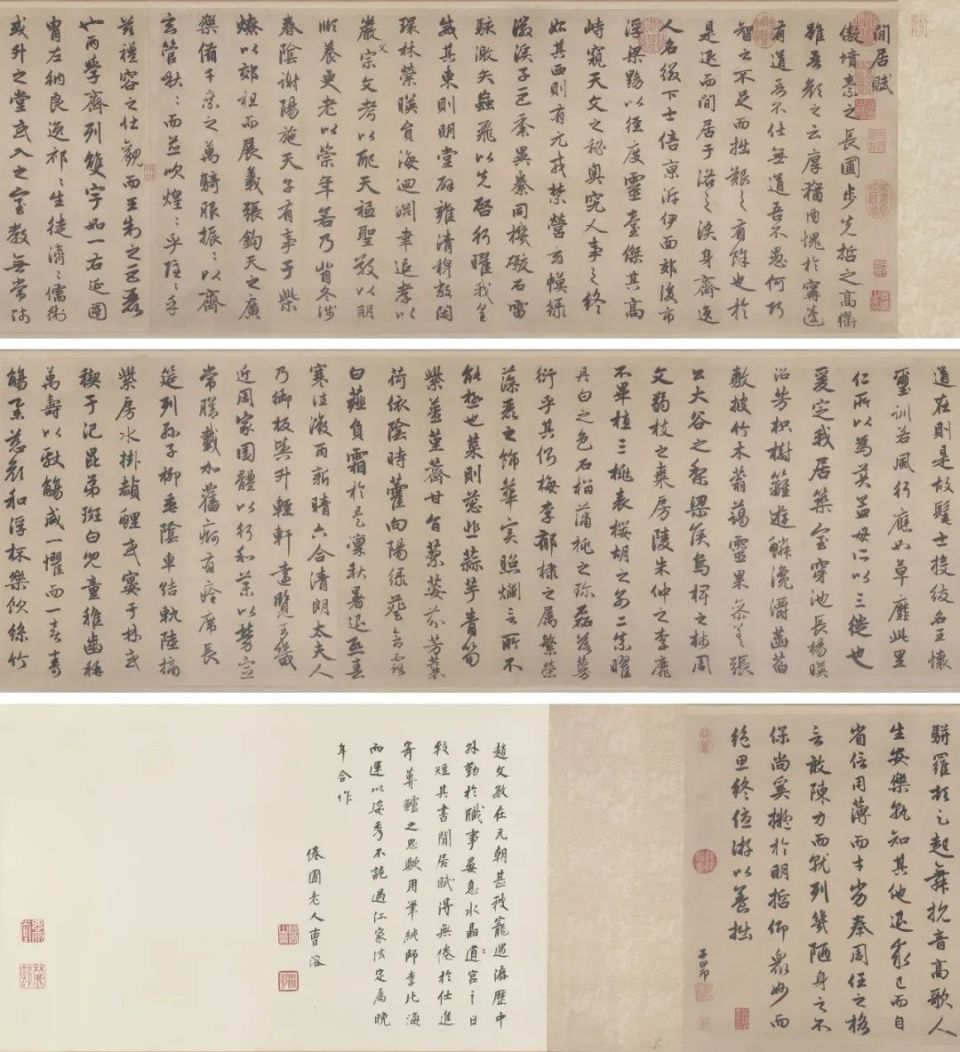 閒居賦
傲墳素之長圃步先哲之高衢
雖吾顏之云厚猶内愧於寗蘧
有道吾不仕無道吾不愚何巧
智之不足而拙艱之有餘也於
是退而閒居于洛之涘身齊逸
人名綴下士倍京泝伊面郊後市
浮梁黝以徑度靈臺傑其高
峙窺天文之秘奥究人事之終
始其西則有元戎禁營玄幙緑
徽溪子巨黍異絭同機礮石雷
駭激矢蝱飛以先啓行曜我皇
威其東則明堂辟雍清穆敞閑
環林縈暎員海迴淵聿追孝以
嚴父宗文考以配天祗聖敬以明
順養更老以崇年若乃背冬涉
春陰謝陽施天子有事于柴
燎以郊祖而展義張鈞天之廣
樂備千乘之萬騎服振〻以齊
玄管啾〻而並吹煌〻乎隱〻乎
茲禮容之壮觀而王制之巨麗
也兩學齊列雙宇如一右延國
胄左納良逸祁〻生徒濟〻儒術
或升之堂或入之室教無常師
道在則是故髦士投紱名王懷
璽訓若風行應如草靡此里
仁所以為美孟母所以三徙也
爰定我居築室穿池長楊暎
沼芳枳樹籬遊鱗瀺灂菡萏
敷披竹木蓊藹靈果參差張
公大谷之梨梁侯烏椑之柿周
文弱枝之棗房陵朱仲之李靡
不畢植三桃表櫻胡之别二柰曜
丹白之色石榴蒲桃之珍磊落蔓
衍乎其側梅李郁棣之属繁榮
藻麗之飾華实照爛言所不
能極也菜則葱韭蒜芋青筍
紫薑堇薺甘旨蓼荾芬芳蘘
荷依陰時藿向陽緑葵含露
白薤負霜於是凜秋暑退熙春
寒往微雨新晴六合清朗太夫人
乃御板輿升輕軒遠覽王畿
近周家園體以行和藥以勞宣
常膳載加舊痾有痊席長
筵列孫子柳垂陰車結軌陸摘
紫房水掛赬鯉或宴于林或
禊于汜昆弟斑白兒童稚齒稱
萬壽以獻觴咸一懼而一喜壽
觴舉慈顔和浮杯樂飲絲竹
駢羅頓足起舞抗音高歌人
生安樂孰知其他退求己而自
省信用薄而才劣奉周任之格
言敢陳力而就列幾陋身之不
保尚奚擬於明哲仰衆妙而
絶思終優游以養拙
子昂
趙文敏在元朝甚被寵遇游歷中
外勤於職事晏息水晶宮之日
較短其書閒居賦得無倦於仕進
寄蓴鱸之思歟用筆純師李北海
而運以姿秀不詭過江家法定為晚
年合作
倦圃老人曹溶